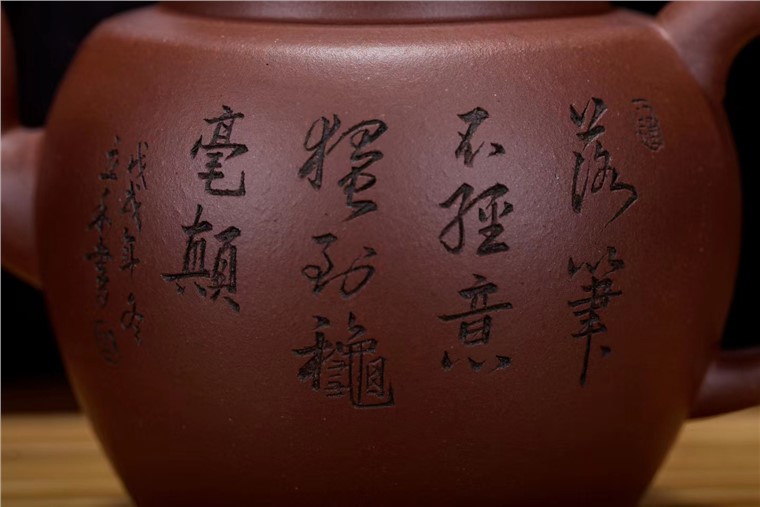 落筆
不經意
獨到龝
毫顛
戊戌年冬
書